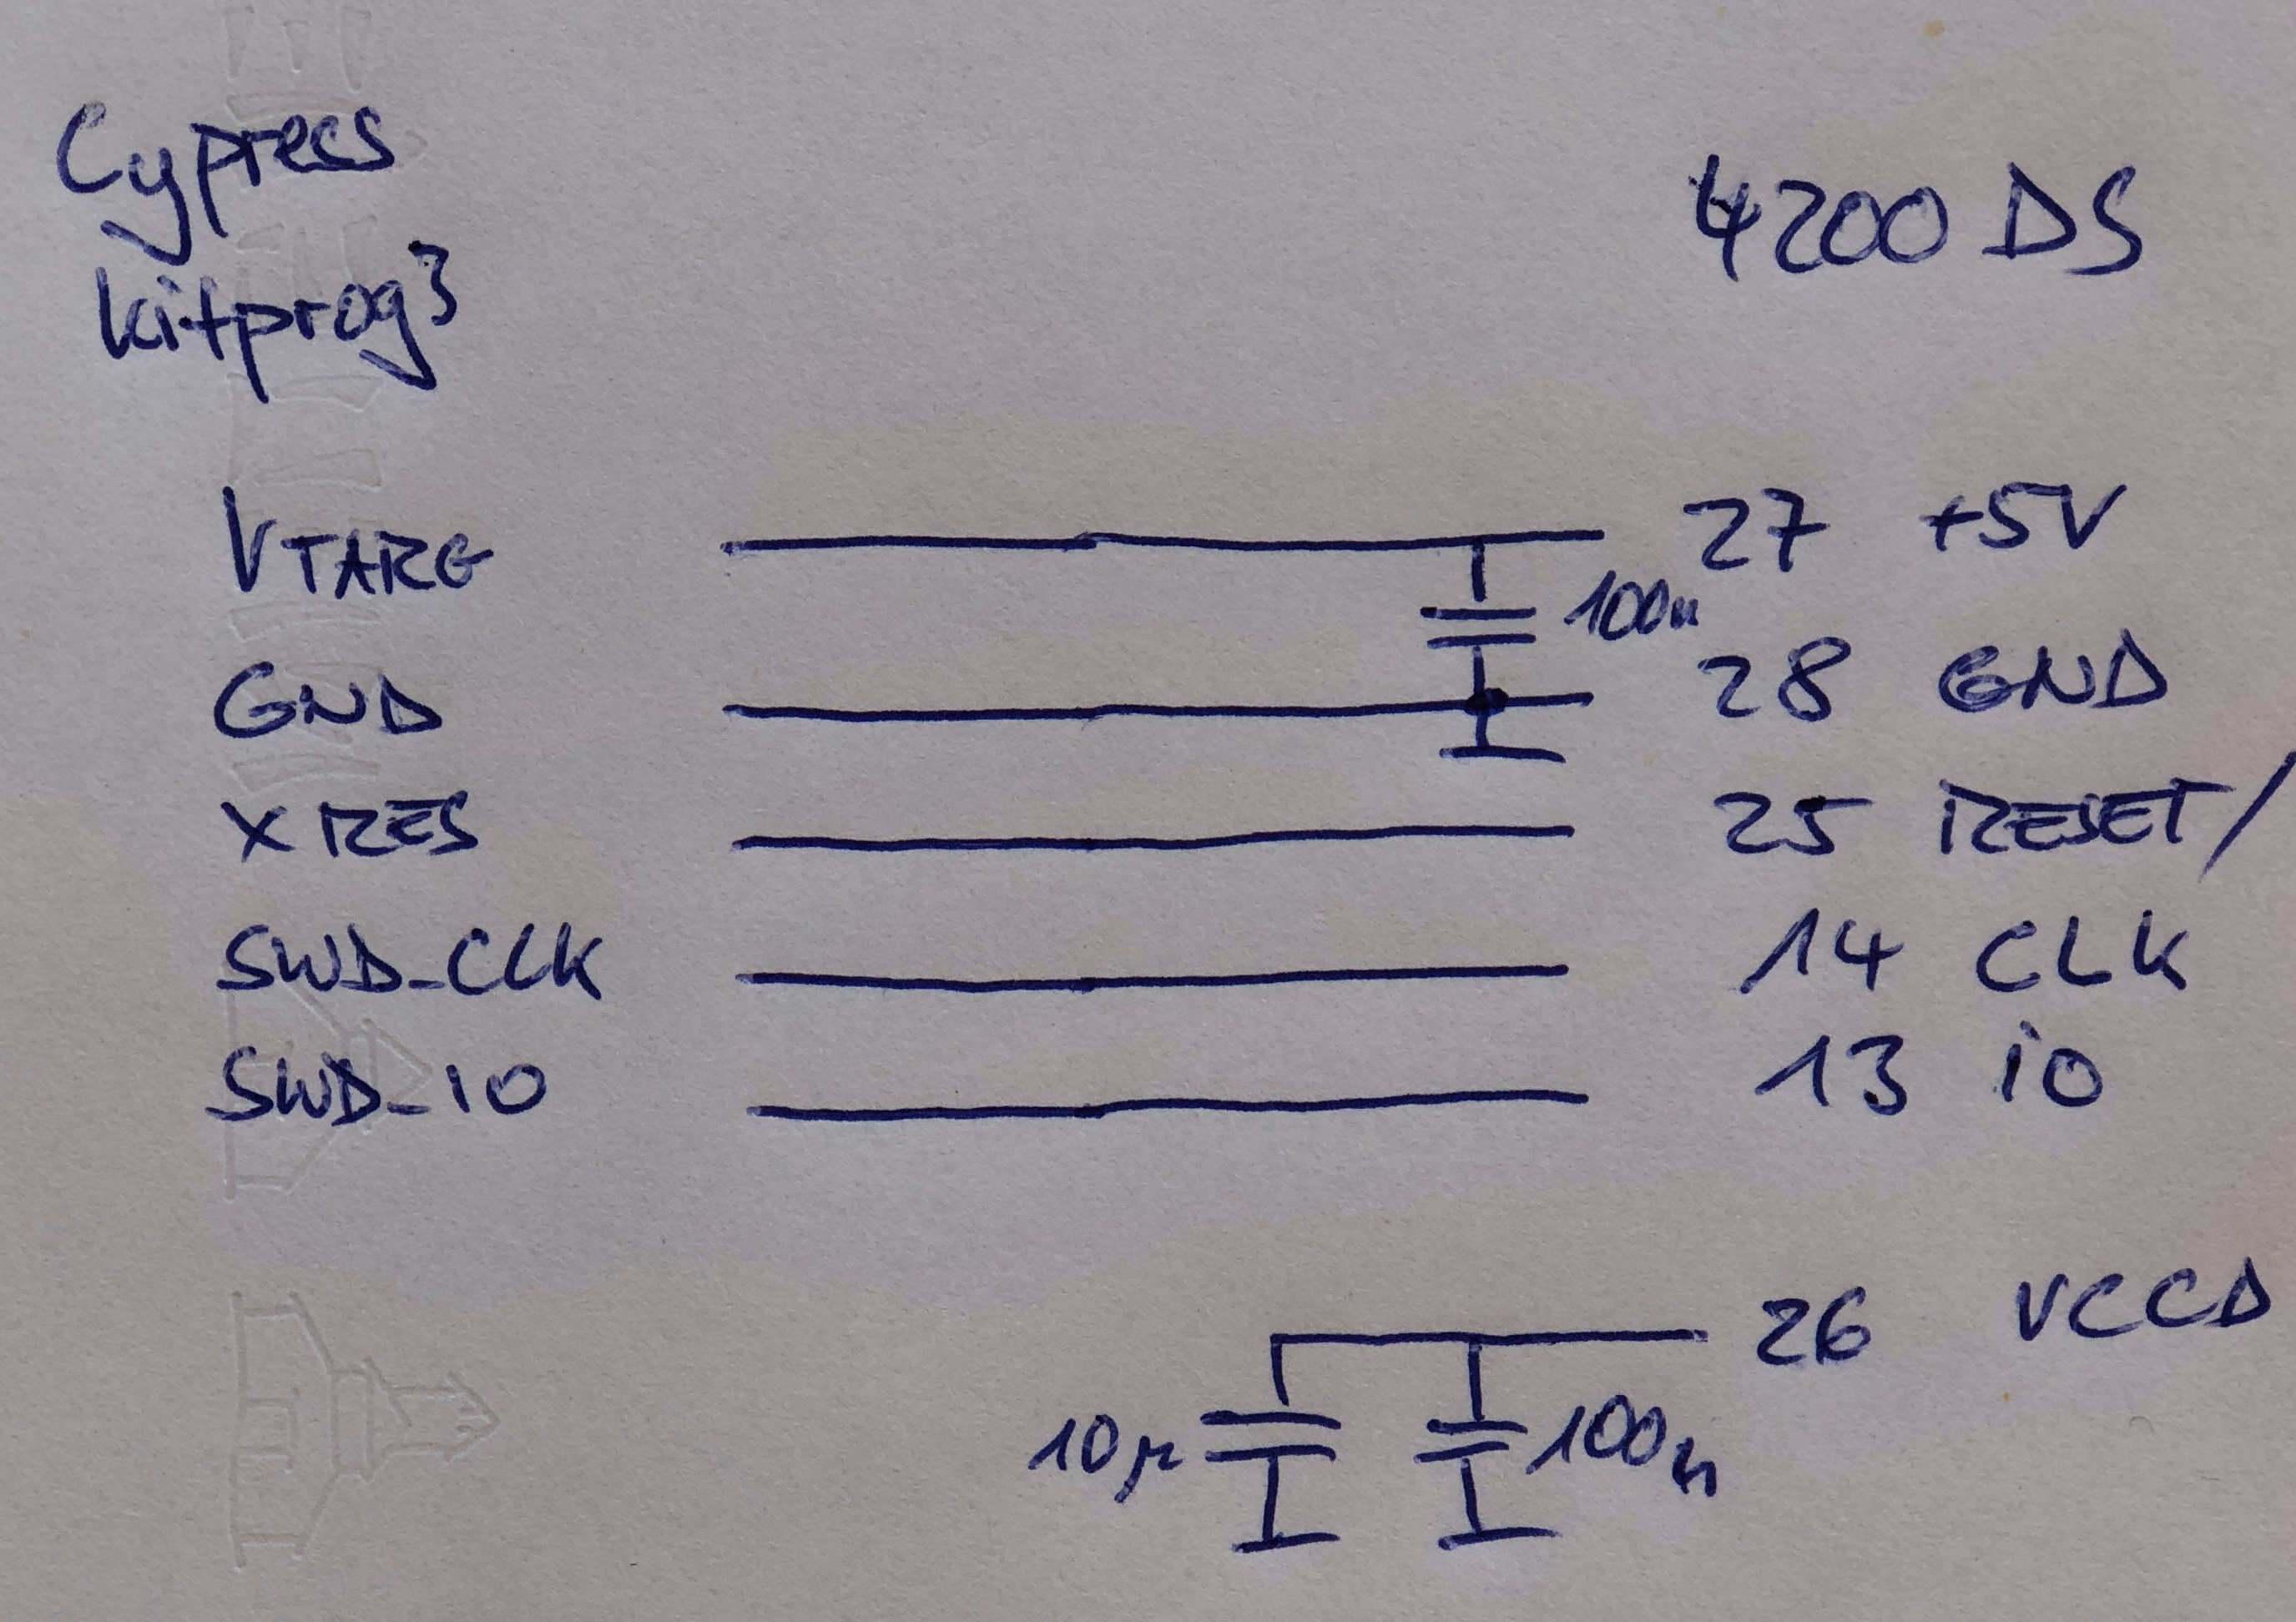 Cypress
kitprog3
4200 DS
VTARG 27 +5V
100n
GND 28 GND
XRES 25 RESET/
SWD_CLK 14 CLK
SWD_IO 13 iO
26 VCCD
10µ 100n